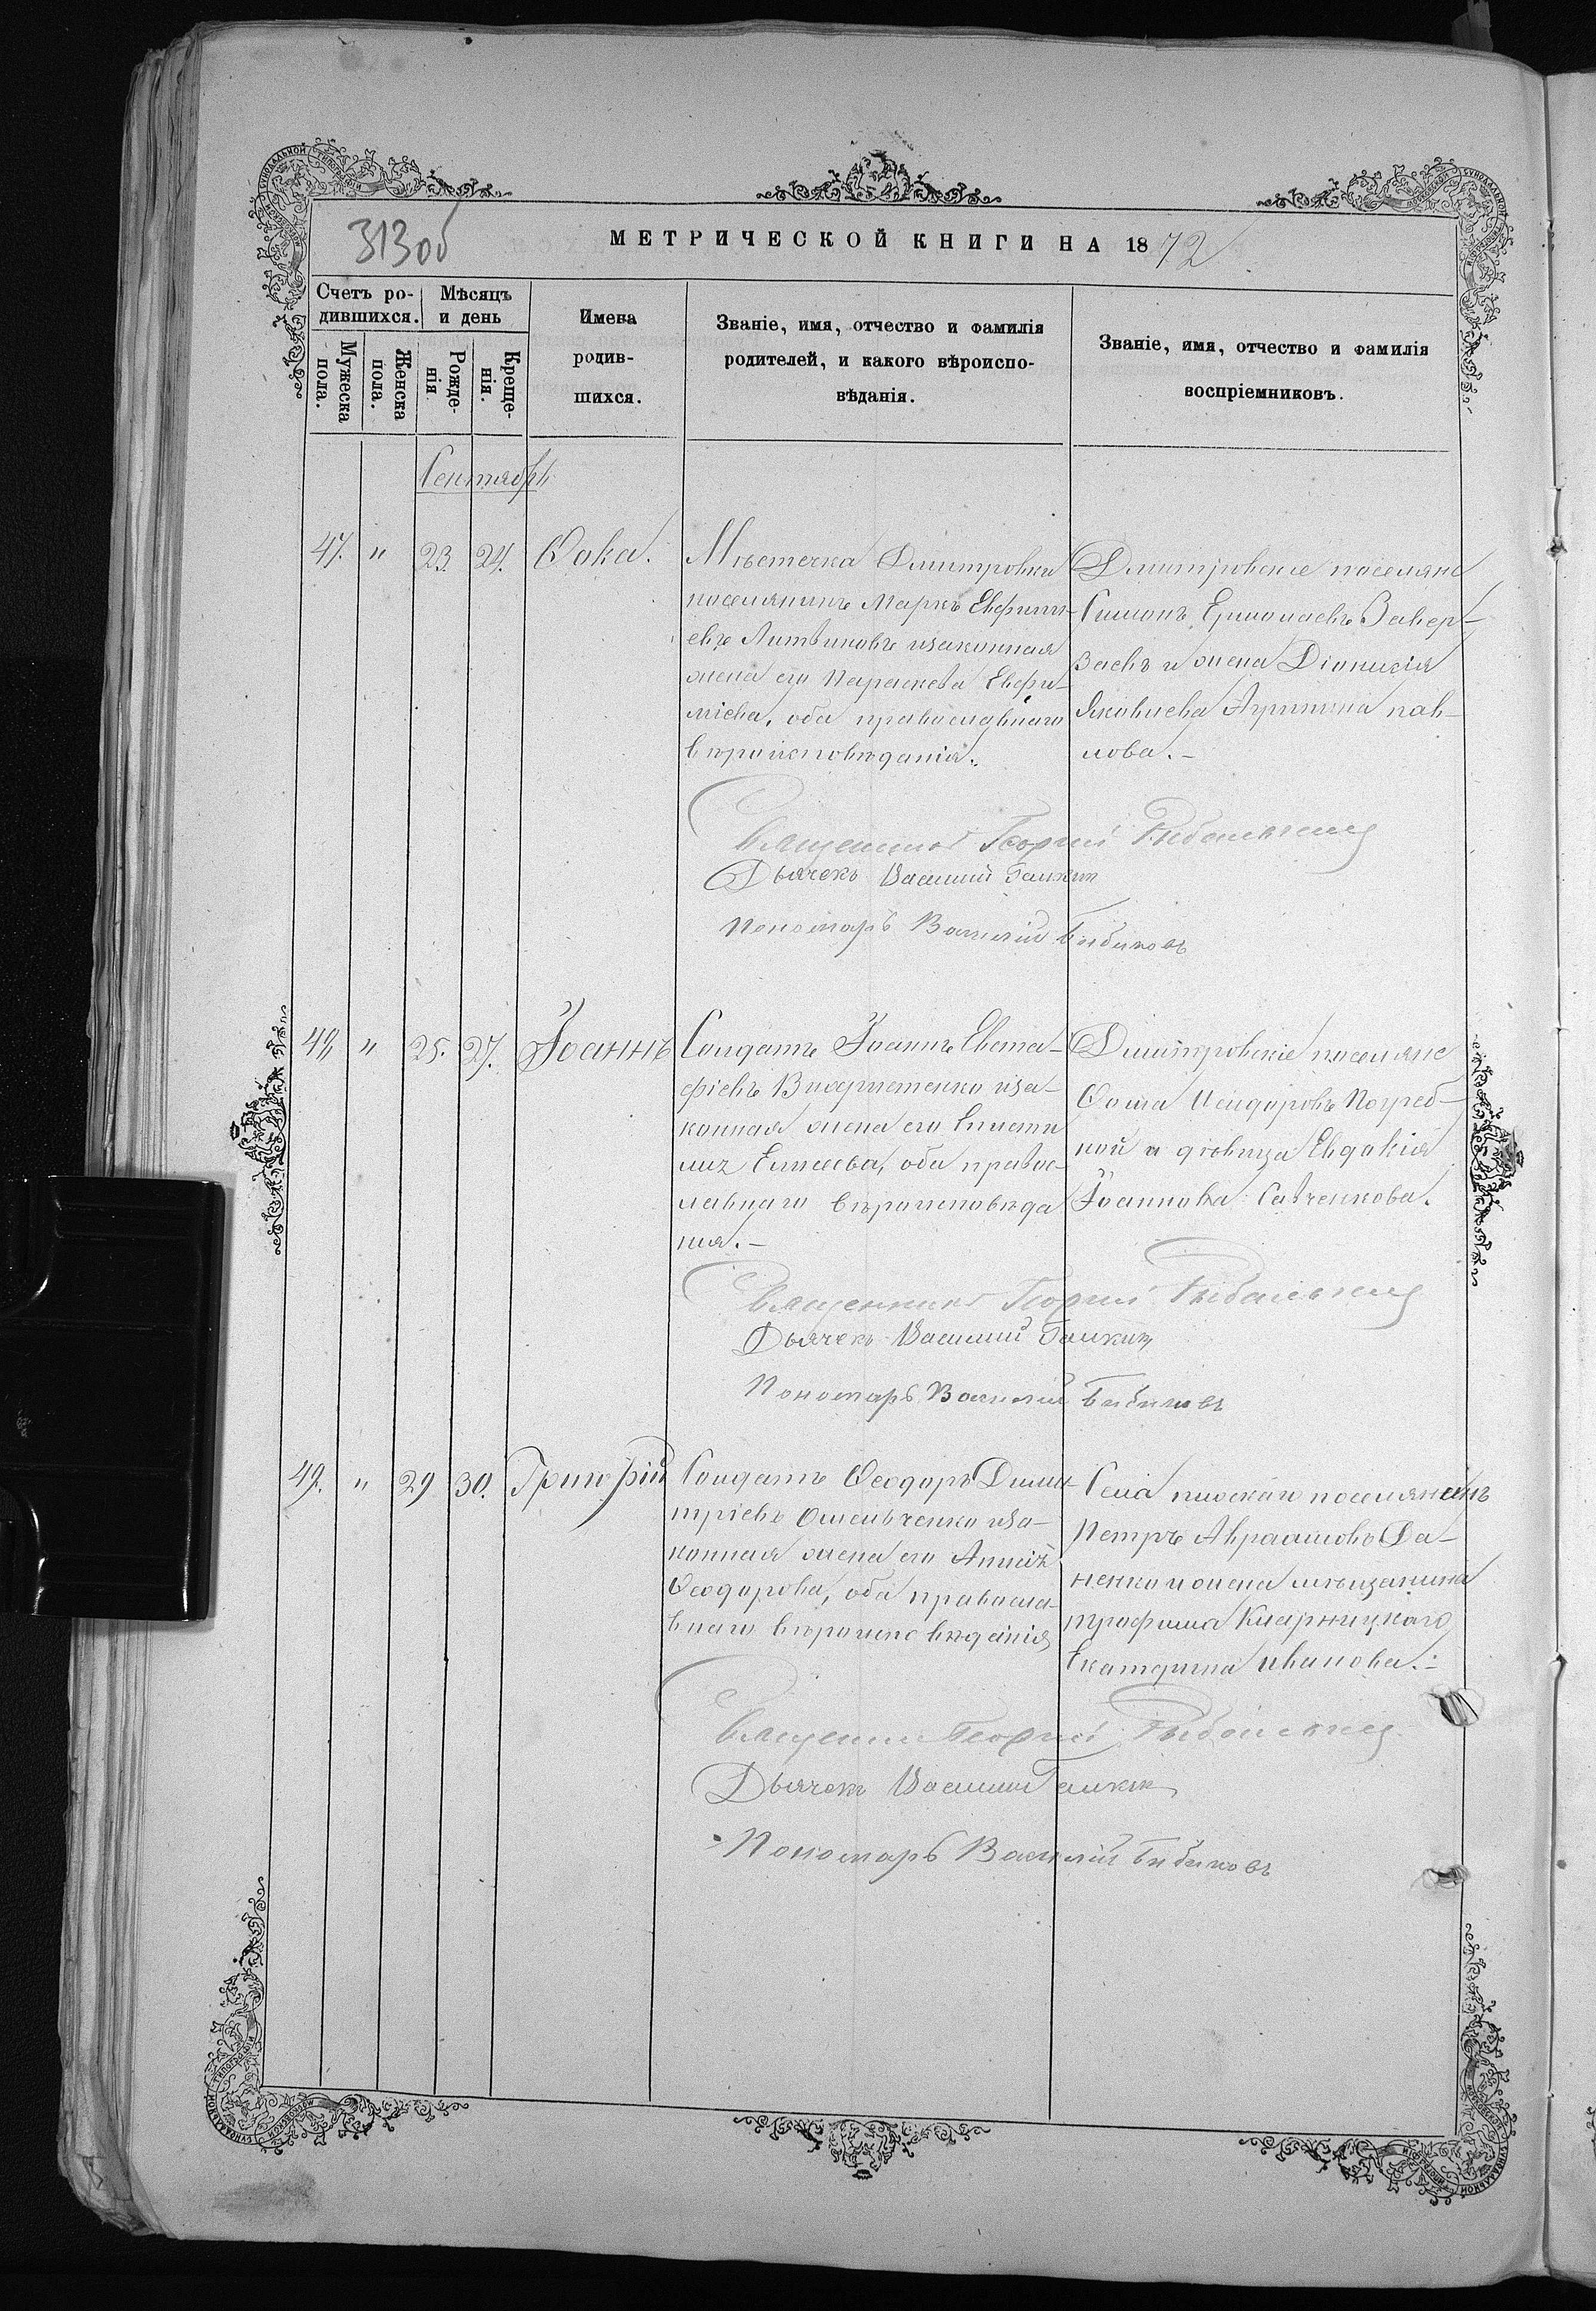 313об
МЕТРИЧЕСКОЙ КНИГИ НА 1872
Счетъ ро-
дившихся.
Мѣсяцъ
и день
Мужеска
пола.
Женска
пола.
Рожде-
нія
Креще-
нія.
Имена
родив-
шихся.
Званіе, имя, отчество и фамилія
родителей, и какого вѣроиспо-
вѣданія.
Званіе, имя, отчество и фамилія
воспріемниковъ.
Сентябрь
47. " 23. 24. Ѳока.
Мѣстечка Дмитровки
поселянинъ Маркъ Евфимі-
евъ Литвиновъ изаконная
жена его Параскева Евфи-
міева, оба православнаго
вѣроисповѣданія.
Дмитровскіе поселяне
Симонъ Ермолаевъ
и жена Діонисія
Яковлева Агрипина пав-
лова.-
Священникъ Георгій Рыбальскій
Дьячекъ Василий Галкин
Пономарь Василій Бибиковъ
48. " 25. 27. Іоаннъ
Солдатъ Іоаннъ Евста-
фіевъ иза-
конная жена его
Елисеева, оба правос-
лавнаго вѣроисповѣда
нія.-
Дмитровскіе поселяне
Ѳома Исидоровъ Погреб-
ной и дѣвица Евдокія
Іоаннова Савченкова.
Священникъ Георгій Рыбальскій
Дьячекъ Василий Галкин
Пономарь Василій Бибиковъ
49. " 29 30. Григорій
Солдатъ Ѳеодоръ Дими-
тріевъ Омельченко иза-
конная жена его Анна
Ѳеодорова, оба правосла-
внаго вѣроисповѣданія
Села поселянинъ
Петръ Авраамовъ Га-
ненко и жена мѣщанина
трофима
Екатерина иванова.-
Священник Георгій Рыбальскій
Дьячекъ Василий Галкин
Пономарь Василій Бибиковъ